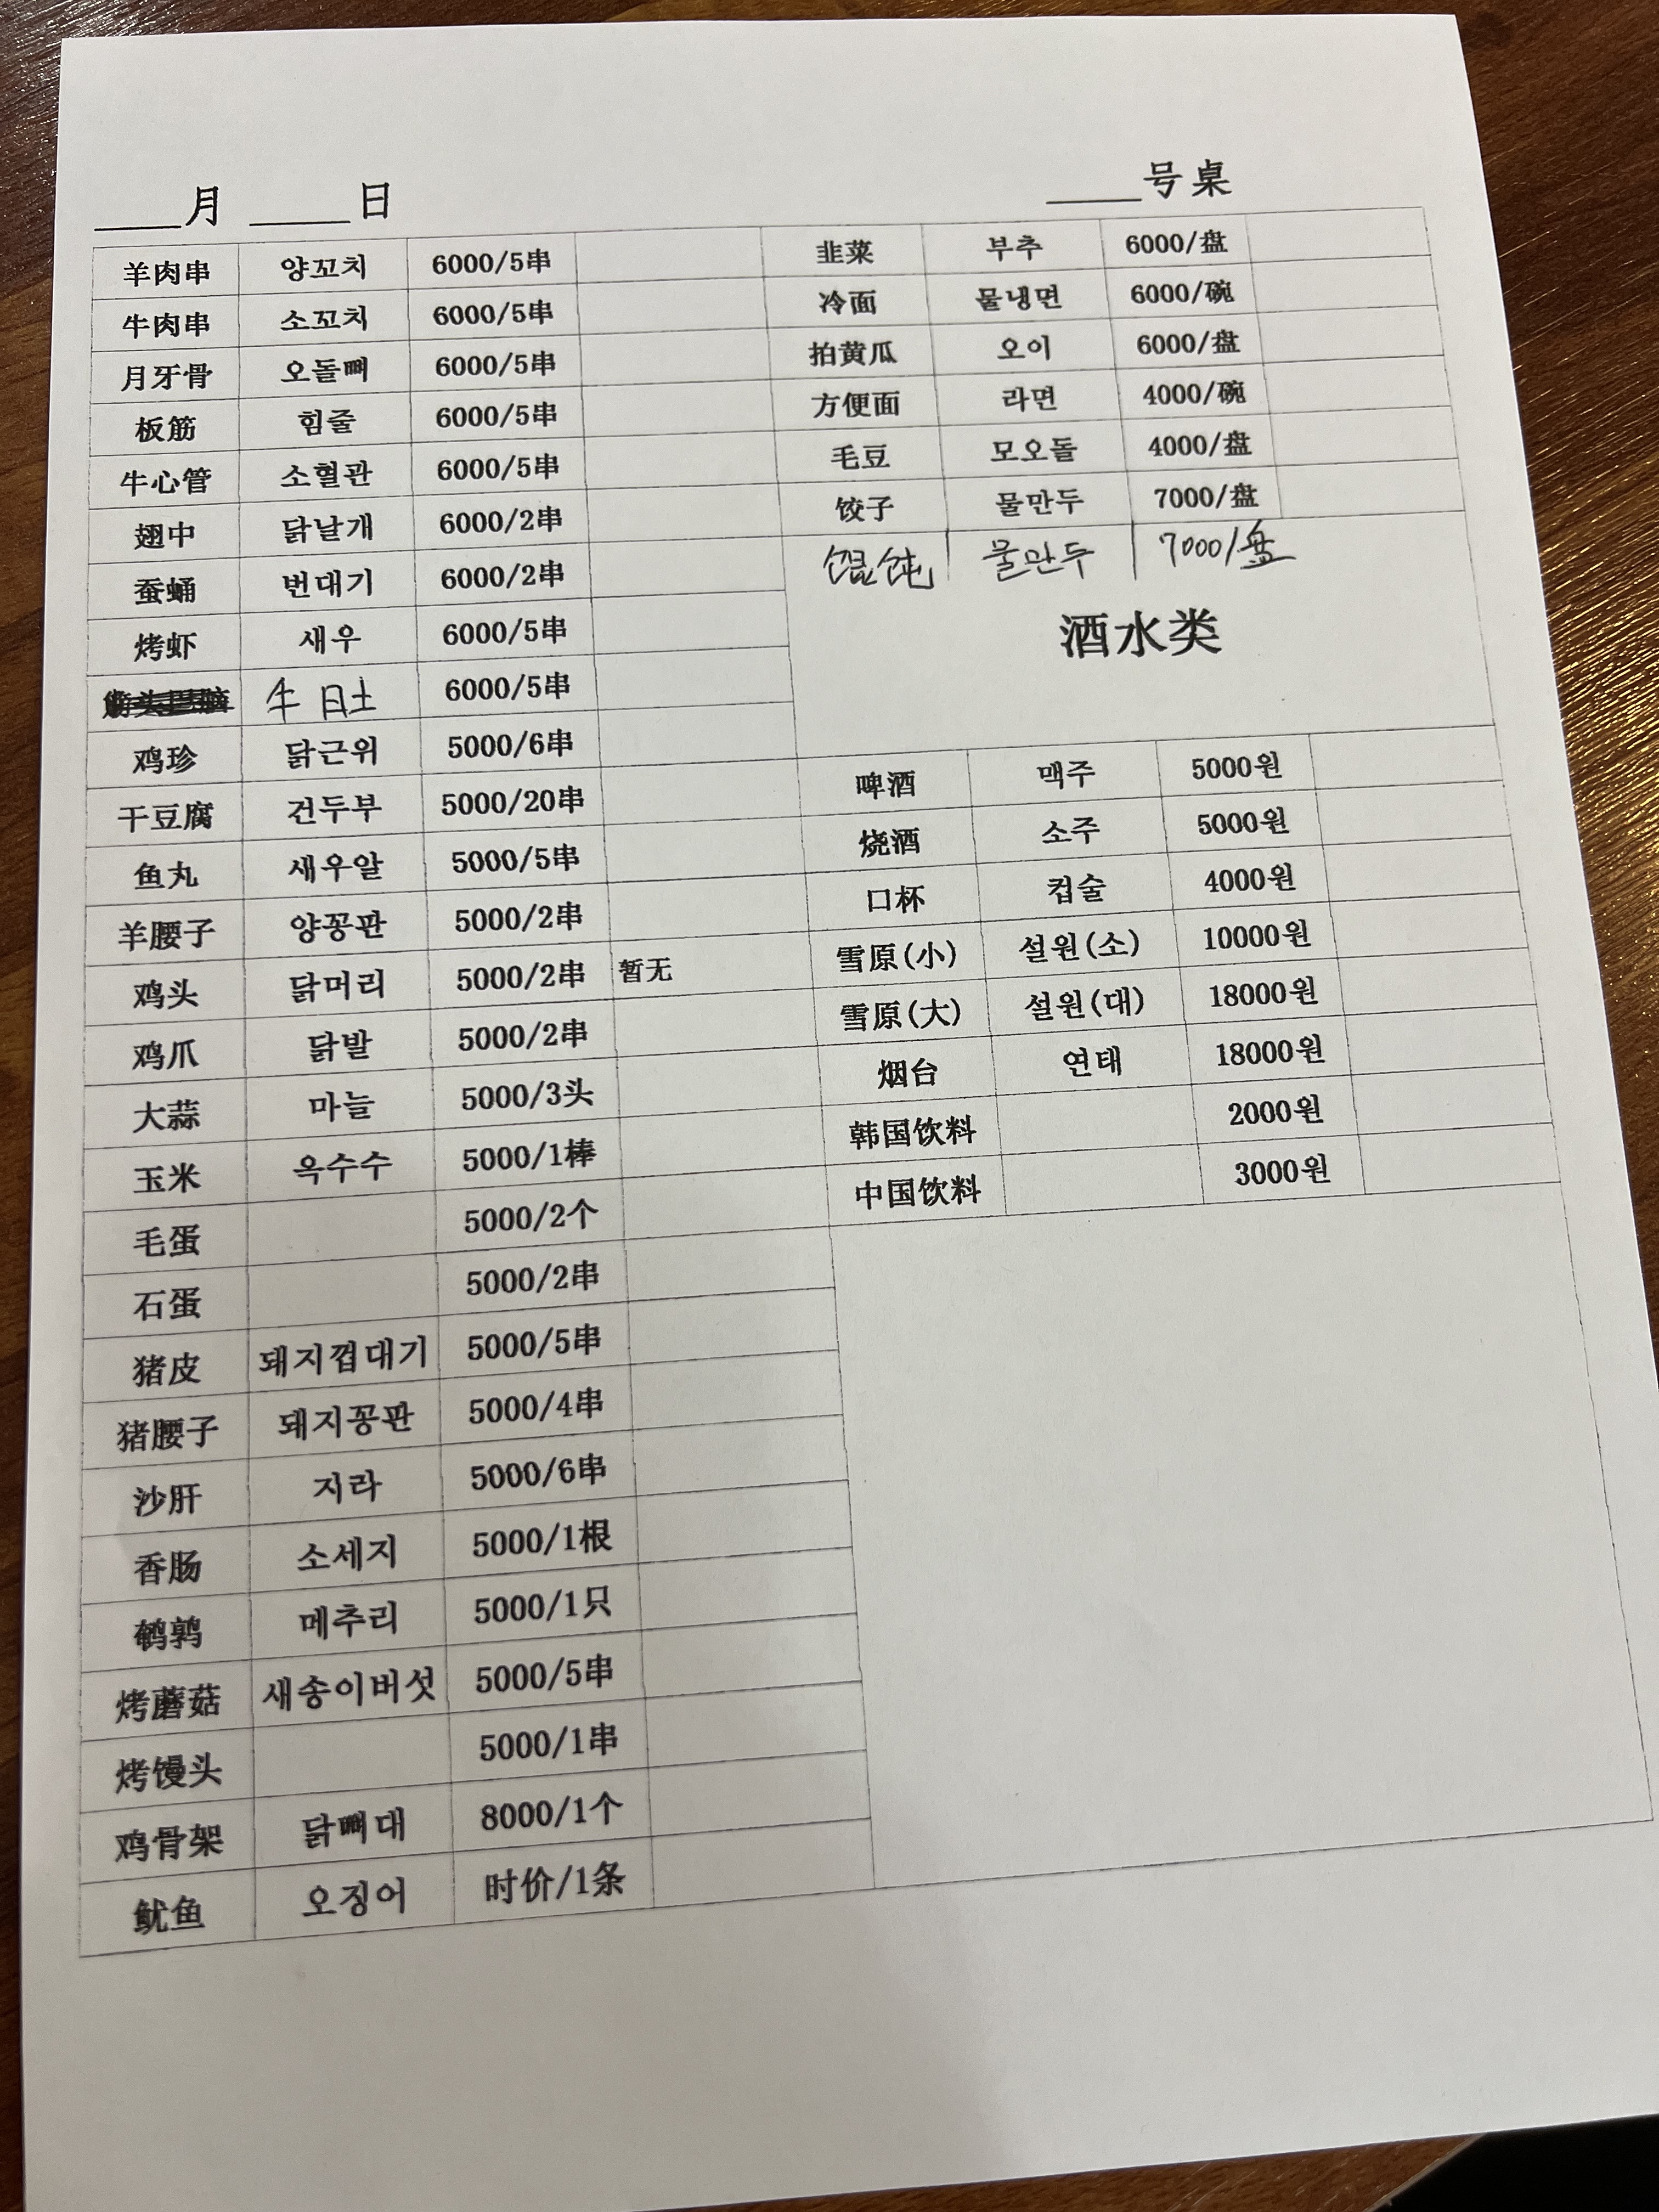 ____月 ____日
____号桌
羊肉串 양꼬치 6000/5串
牛肉串 소꼬치 6000/5串
月牙骨 오돌뼈 6000/5串
板筋 힘줄 6000/5串
牛心管 소혈관 6000/5串
翅中 닭날개 6000/2串
蚕蛹 번대기 6000/2串
烤虾 새우 6000/5串
牛 6000/5串
鸡珍 닭근위 5000/6串
干豆腐 건두부 5000/20串
鱼丸 새우알 5000/5串
羊腰子 양꽁판 5000/2串
鸡头 닭머리 5000/2串 暂无
鸡爪 닭발 5000/2串
大蒜 마늘 5000/3头
玉米 옥수수 5000/1棒
毛蛋 5000/2个
石蛋 5000/2串
猪皮 돼지껍대기 5000/5串
猪腰子 돼지꽁판 5000/4串
沙肝 지라 5000/6串
香肠 소세지 5000/1根
鹌鹑 메추리 5000/1只
烤蘑菇 새송이버섯 5000/5串
烤馒头 5000/1串
鸡骨架 닭뼈대 8000/1个
鱿鱼 오징어 时价/1条
韭菜 부추 6000/盘
冷面 물냉면 6000/碗
拍黄瓜 오이 6000/盘
方便面 라면 4000/碗
毛豆 모오돌 4000/盘
饺子 물만두 7000/盘
馄饨 물만두 7000/盘
酒水类
啤酒 맥주 5000원
烧酒 소주 5000원
口杯 컵술 4000원
雪原(小) 설원(소) 10000원
雪原(大) 설원(대) 18000원
烟台 연태 18000원
韩国饮料 2000원
中国饮料 3000원